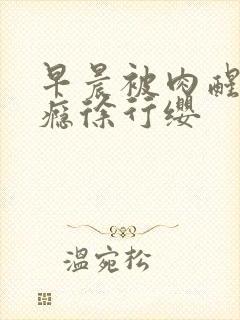 早晨被肉醒
瘾徐行缨
温宛松